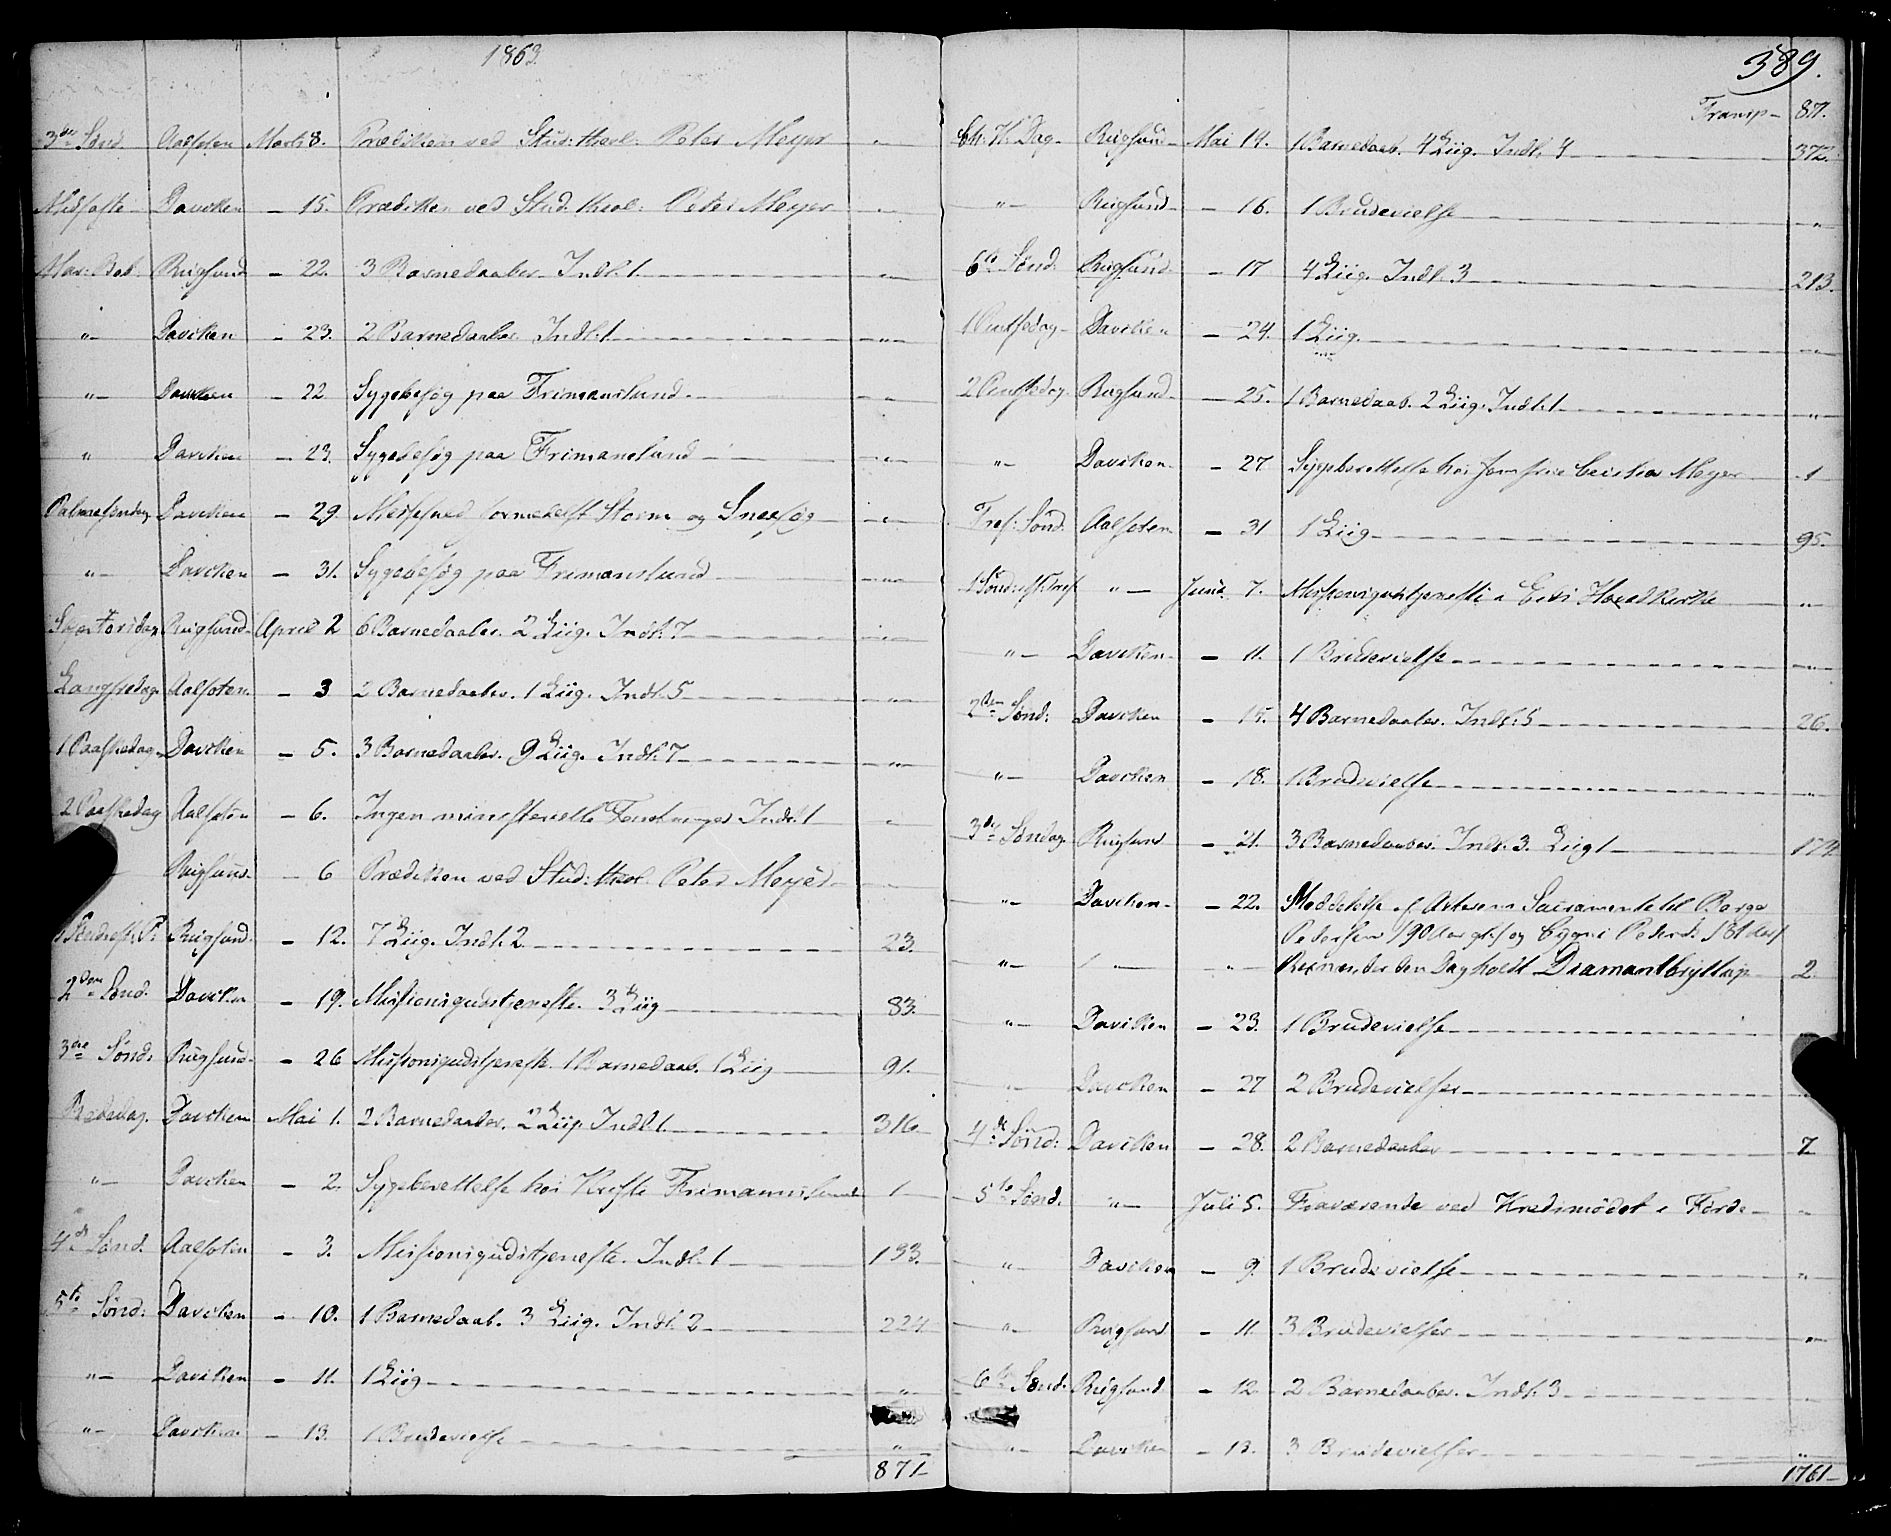 1863.
3die Sønd. Aalfoten Marts 8. Prædiken ved Stud: theol: Peter Meyer „
Midfaste Daviken – 15. Prædiken ved Stud. theol: Peter Meyer „
Mar: Beb. Rugsund – 22. 3 Barnedaaber Indl: 1 „
„ Daviken – 23. 2 Barnedaaber Indl: 1 „
„ Daviken – 22 Sygebesøg paa Frimanslund „
„ Daviken – 23. Sygebesøg paa Frimanslund „
Palmesøndag Daviken – 29. Messefald formedelst Storm og Sneefog „
„ Daviken – 31. Sygebesøg paa Frimanslund „
Skjærtorsdag Rugsund April 2 6 Barnedaaber. 2 Liig. Indl: 7 „
Langfredag Aalfoten – 3 2 Barnedaaber. 1 Liig. Indl: 5 „
1 Paaskedag Daviken – 5. 3 Barnedaaber. 9 Liig. Indl: 7 „
2 Paaskedag Aalfoten – 6. Ingen ministerielle Forretninger Indl: 1 „
Rugsund – 6 Prædiken ved Stud: theol: Peter Meyer
1 Sønd. eft. P: Rugsund – 12. 7 Liig. Indl: 2 23.
2den Sønd. Daviken – 19. Missionsgudstjeneste. 3 Liig 83.
3die Sønd. Rugsund – 26 Missionsgudstjeneste. 1 Barnedaab. 1 Liig 91.
Bededag. Daviken Mai 1. 2 Barnedaaber. 2 Liig. Indl: 1 316
„ Daviken – 2. Sygeberettelse hos Frimannslund 1
4de Sønd. Aalfoten – 3. Missionsgudstjeneste. Indl: 1 133.
5te Sønd: Daviken – 10. 1 Barnedaab. 3 Liig. Indl: 2 224
„ Daviken – 11. 1 Liig „
„ Daviken – 13. 1 Brudevielse „
871
389.
Transp – 871.
Chr: H: Dag Rugsund Mai 14. 1 Barnedaab. 4 Liig. Indl: 4 372.
„ Rugsund – 16. 1 Brudevielse „
6te Sønd. Rugsund – 17 4 Liig. Indl: 3 213.
1 Pintsedag Daviken – 24. 1 Liig. „
2 Pintsedag Rugsund – 25. 1 Barnedaab. 2 Liig. Indl: 1 „
„ Daviken – 27 Sygeberettelse hos Jomfrue Meyer 1
Tref: Sønd. Aalfoten – 31 1 Liig 95.
1 Sønd. eft. Tref „ Juni 7. Missionsgudstjeneste i Eids Hovedkirke „
„ Daviken – 11. 1 Brudevielse „
2den Sønd: Daviken – 15. 4 Barnedaaber. Indl: 5 26.
„ Daviken – 18. 1 Brudevielse „
3die Søndag Rugsund – 21. 3 Barnedaaber. Indl: 3. Liig 1 174
„ Daviken – 22. Meddelelse af Alterens Sacramente til Børge
Pedersen (90 Aar gl:) og Pedersd: (81 do)
„ „ „ Reknes, der den Dag holdt Diamantbryllup 2
„ Daviken – 23. 1 Brudevielse
„ Daviken – 27 2 Brudevielser „
4de Sønd: Daviken – 28. 2 Barnedaaber 7
5te Sønd. „ Juli 5. Fraværende ved Kredsmødet i Førde „
„ Daviken – 9. 1 Brudevielse „
„ Rugsund – 11. 3 Brudevielser „
6te Sønd. Rugsund – 12 2 Barnedaaber. Indl: 3
„ Daviken – 13. 3 Brudevielser „
1761